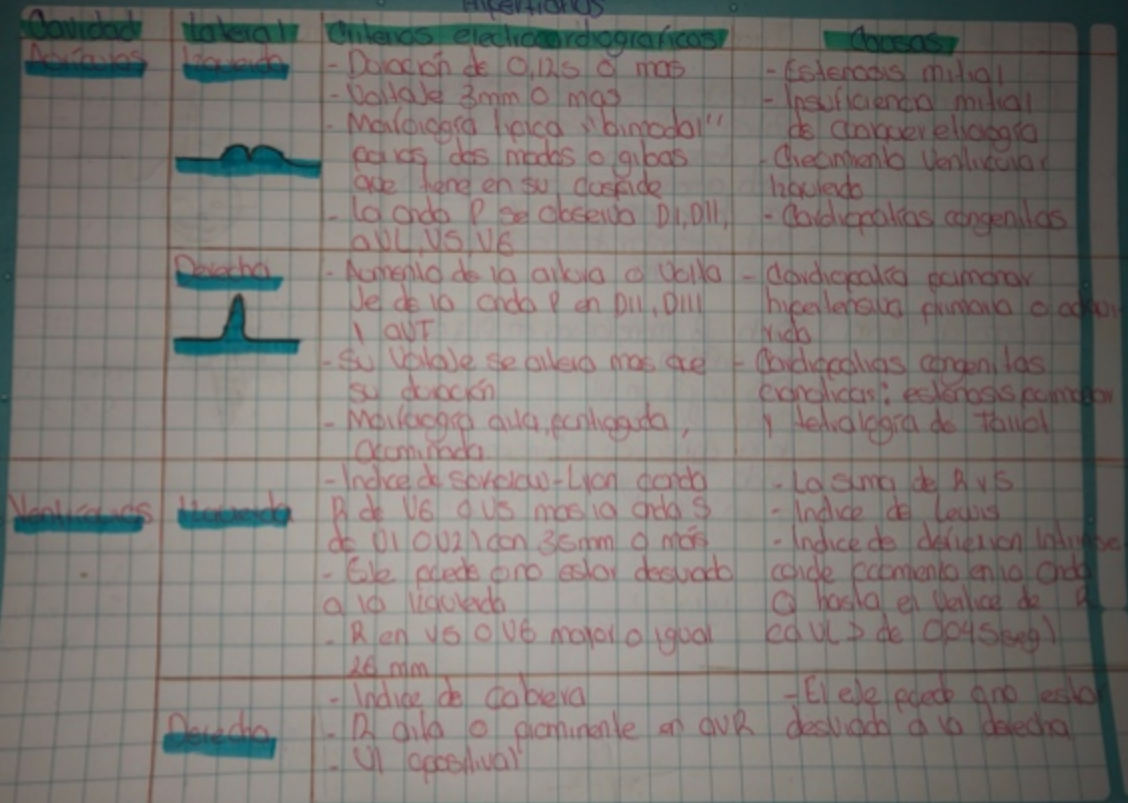 Hipertrofias
Cavidad Lateral Criterios electrocardiograficos Causas
Aurículas Izquierda
- Duración de 0,12s o mas
- Voltaje 3mm o mas
- Morfología tipica "bimodal"
por los dos modos o gibas
que tiene en su cuspide
- la onda P se observa D1, D11,
aVL, V5, V6
- Estenosis mitral
- Insuficiencia mitral
de cualquier etiología
- Crecimiento Ventricular
Izquierdo
- Cardiopatias congenitas
Derecha
- Aumento de la altura o Volta
je de la onda P en D11, D111
y aVF
- Su Voltaje se altera mas que
su duración
- Morfología alta, puntiaguda,
acuminada
- Cardiopatía pulmonar
hipertensiva primaria o adqui
rida
- Cardiopatias congenitas
cianoticas: estenosis pulmonar
y tetralogía de Fallot
Ventrículos Izquierdo
- Indice de Sokolow-Lyon (onda
R de V6 o V5 mas la onda S
de V1 o V2) con 35mm o más
- Eje puede o no estar desviado
a la izquierda
- R en V5 o V6 mayor o igual
26 mm
- La suma de R y S
- Indice de Lewis
- Indice de deflexion
desde momento en la Onda
Q hasta el Vertice de R
en aVL > de 0,045 seg)
Derecha
- Indice de Cabrera
- R alta o prominente en aVR
- V1 (positiva)
- El eje puede o no estar
desviado a la derecha